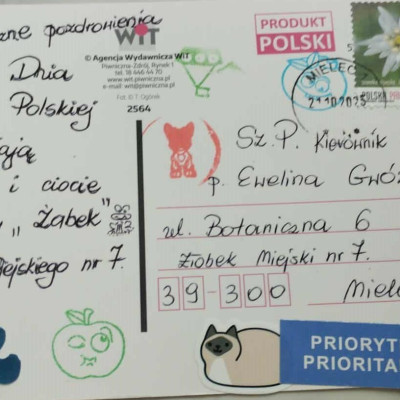 ne pozdrowienia
Dnia
Polskiej
i ciocie
" Żabek "
ejskiego nr 7.
WiT
© Agencja Wydawnicza WiT
Piwniczna-Zdrój, Rynek 1
tel. 18 446 44 70
www.piwniczna.pl
e-mail: wit@piwniczna.pl
Fot. © T. Ogórek
2564
PRODUKT
POLSKI
MIELEC
POLSKA
Sz. P. Kierownik
p. Ewelina Gwóź
ul. Botaniczna 6
Żłobek Miejski nr 7.
39-300
Miele
PRIORYT
PRIORITA